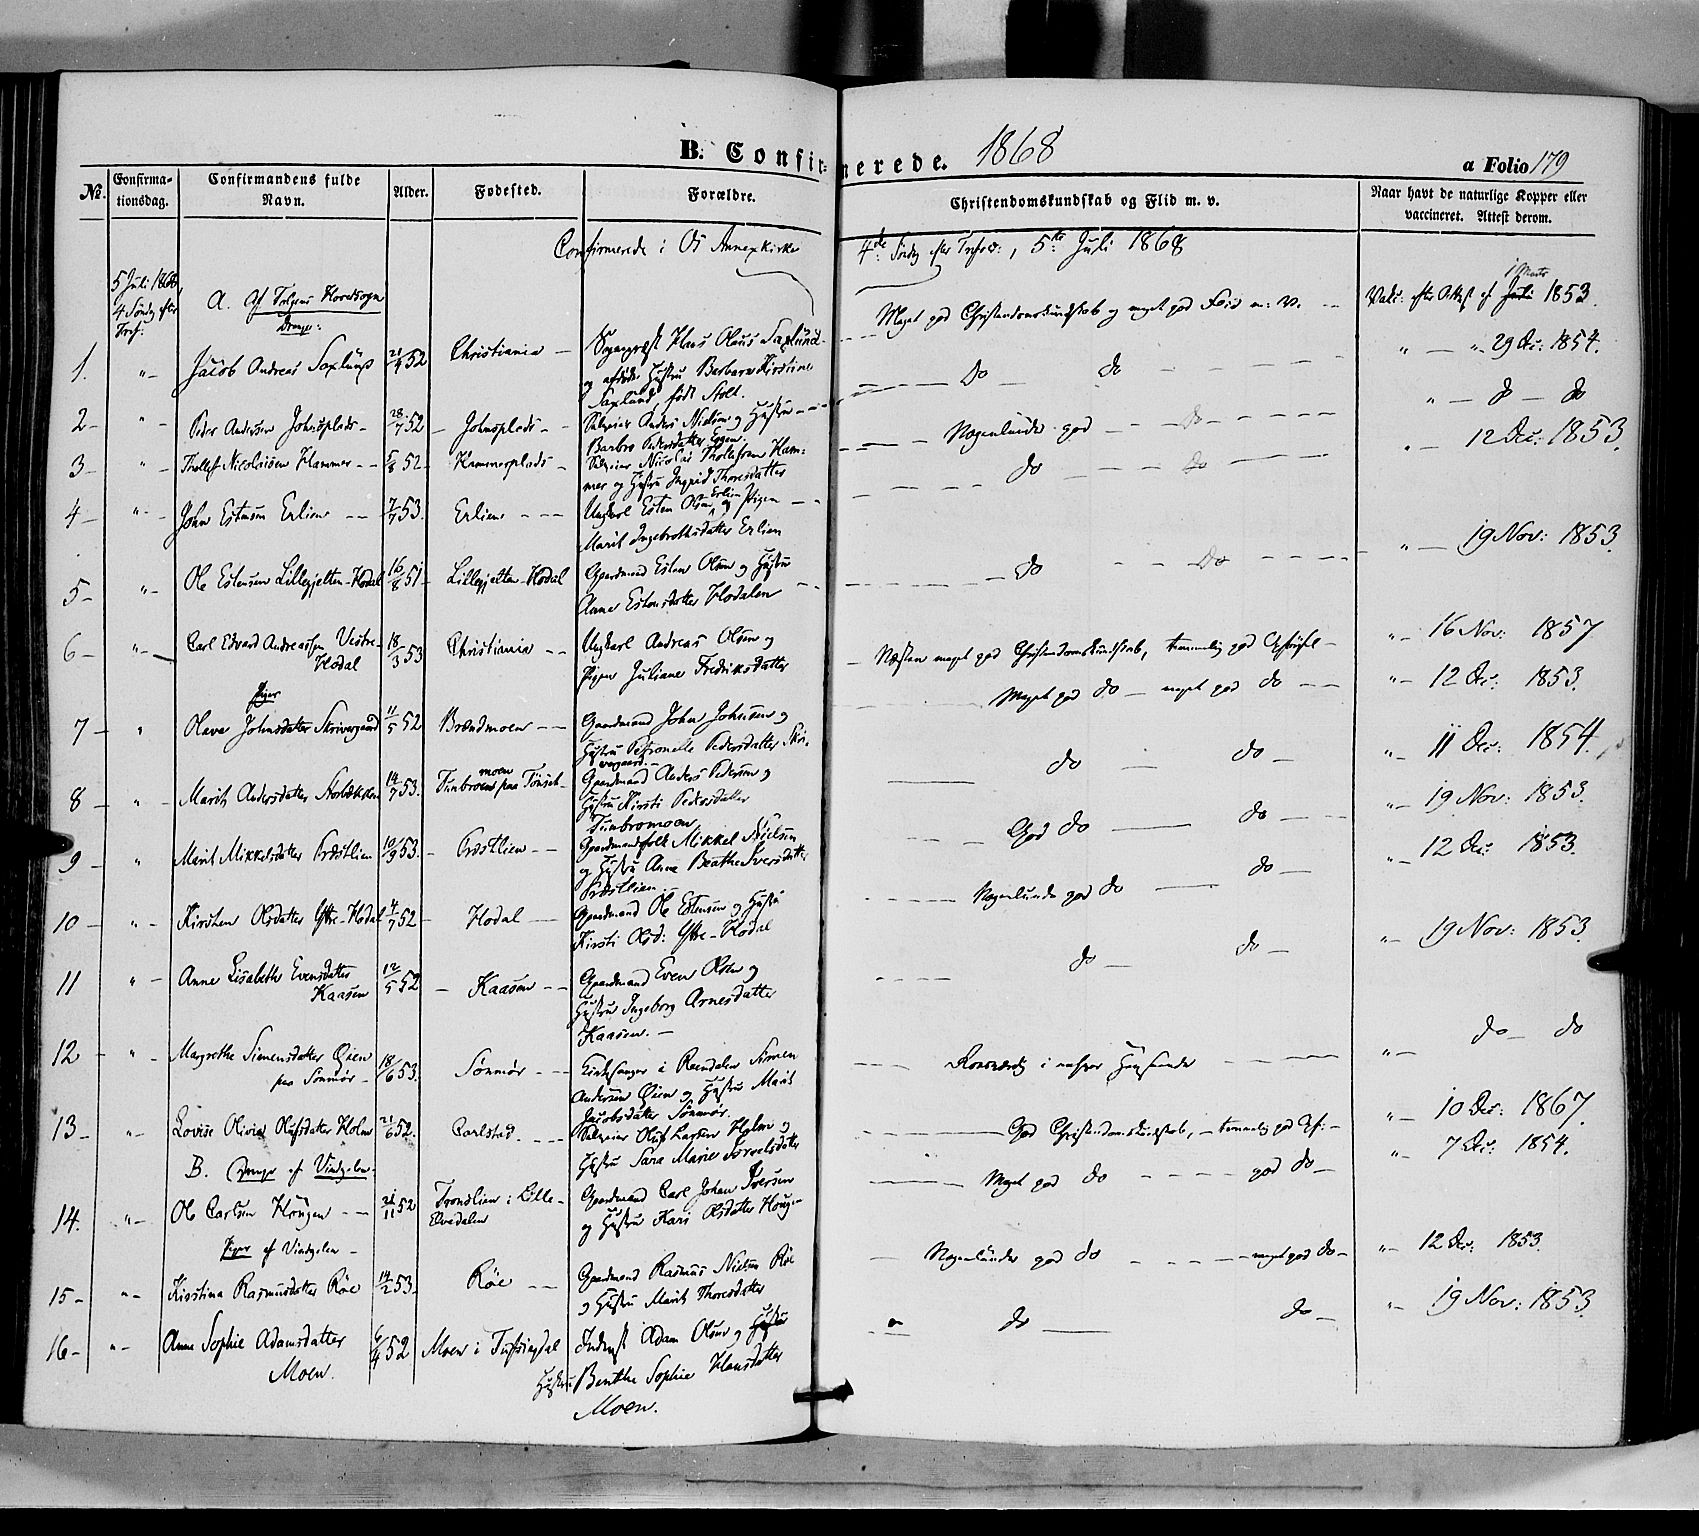 B. Confirmerede. 1868
a Folio 179
No. Confirmationsdag. Confirmandens fulde Navn. Alder. Fødested. Forældre. Christendomskundskab og Flid m. v. Naar havt de naturlige Kopper eller vaccineret. Attest derom.
Confirmerede i Os Annexkirke 4de Søndag efter Trefold:, 5te Juli 1868
5 Juli 1868
4 Søndag efter Tref:
A. Af Tolgens Hovedsogn
Drenge:
1. "- Jacob Andreas Saxlund 21/9 52 Christiania - Sogneprest Hans Olaus Saxlund
og afdøde Hustru Barbara Kirstine
Saxlund, født Stolt.
Meget god Christendomskundskab og meget god Flid m: v. -- Vakc: efter Attest af 1853.
2- "- Peder Andersen Johnsplads- 28/7 52 - Johnsplads - - Selveier Anders Nielsen og Hustru
Barbro Pedersdatter Eggen
Do do " - "- 29 Dec: 1854.
3- "- Thollef Nicolaisen Hammer - - 5/8 52 - Hammerplads - Selveier Nicolai Thollefsen Ham-
mer og Hustru Ingrid Thoresdatter
Nogenlunde god - - do - " - do - do
4- "- John Estensen Erlien - - 7/7 53. Erlien - - - Ungkarl Esten Olsen Erlien og Pigen
Marit Ingebrethsdatter Erlien
do - - - do " - 12 Dec: 1853.
5- "- Ole Estensen Lillegjelten-Hodal 16/8 51 - Lillegjelten-Hodal Gaardmand Esten Olsen og Hustru
Anne Estensdatter Hodalen
do - - do - " - 19 Nov: 1853.
6- "- Carl Edvard Andreassen Vestre-
Hodal 18/3 53 Christiania - - Ungkarl Andreas Olsen og
Pigen Juliane Fredriksdatter
- Næsten meget god Christendomskundskab, temmelig god - "- 16 Nov: 1857
Piger
7- " Olava Johnsdatter Skrivergaard 11/5 52 Brændmoen - - Gaardmand John Johnsen og
Hustru Petronelle Pedersdatter Skri-
vergaard.-
Meget god do - meget god do - - "- 12 Dec: 1853.
8- "- Marit Andersdatter 14/7 53. Tunbroen moen paa Tønset- Gaardmand Anders Pedersen og
Hustru Kirsti Pedersdatter
Tunbromoen
do - do - " 11 Dec: 1854.
9- " Marit Mikkelsdatter Præstlien 10/9 53. - Præstlien - - Gaardmandsfolk Mikkel Nielsen
og Hustru Anne Beathe Iversdatter
Præstlien.
God do - do - - "- 19 Nov: 1853.
10- "- Kirsten Olsdatter Ytre-Hodal 4/7 52 - Hodal - Gaardmand Ole Estensen og Hustru
Kirsti Olsd: Ytre-Hodal
Nogenlunde god do - do - "- 12 Dec: 1853.
11 "- Anne Lisabethe Evensdatter
Kaasen 12/5 52 - Kaasen - - Gaardmand Even Olsen og
Hustru Ingeborg Arnesdatter
Kaasen. -
do - do - "- 19 Nov: 1853.
12- "- Margrethe Simensdatter Øien
paa Sønmør - 18/6 53. Sønmør - - Kirkesanger i Rendalen Simen
Andersen Øien og Hustru Marit
Jacobsdatter Sønmør.
i Henseende "- do - do
13- "- Lovise Olivia Olufsdatter Holm 21/6 52. Carlstad - - - Selveier Oluf Larsen Holm og
Hustru Sara Marie
God Christendomskundskab, - temmelig god - "- 10 Dec: 1867.
B. Drenge af Vindgelen.
14. "- Ole Carlsen Hougen - - 21/11 52 Tronslien i Lille-
Elvedalen Gaardmand Carl Johan Iversen
og Hustru Kari Olsdatter Hougen
Meget god do - - - god do - "- 7 Dec: 1854.
Piger af Vindgelen -
15- "- Kirstina Rasmusdatter Røe 14/2 53. Røe - - Gaardmand Rasmus Nielsen Røe
og Hustru Marit Thoresdatter
- Nogenlunde god do - - - meget god do - "- 12 Dec: 1853.
16- "- Anne Sophie Adamsdatter
Moen. 6/4 52 Moen i Tufsingdal Inderst Adam Olsen og Hustru
Hustru Benthe Sophie Hansdatter
Moen.
" do - do - "- 19 Nov: 1853.